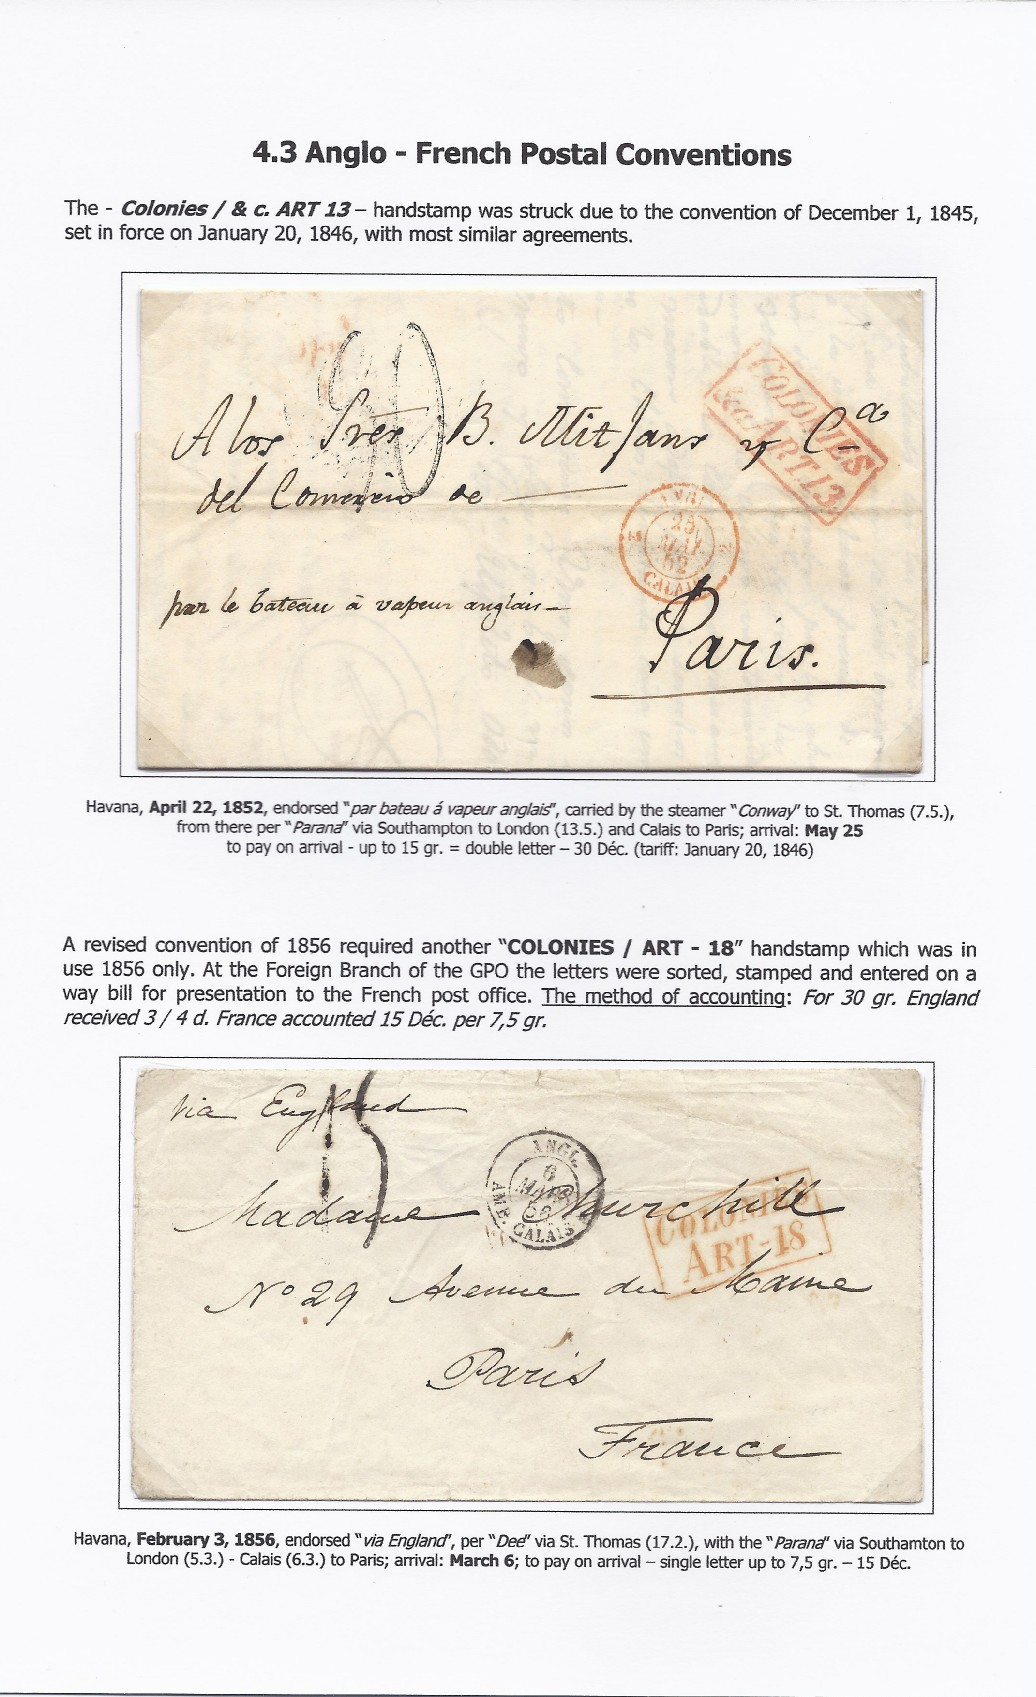 4.3 Anglo - French Postal Conventions
The - Colonies / & c. ART 13 – handstamp was struck due to the convention of December 1, 1845,
set in force on January 20, 1846, with most similar agreements.
30
COLONIES
&c. ART.13.
A los Sres B. Mitjans y Ca
del Comercio de
ANGL.
25
MAI
52
CALAIS
par le bateau à vapeur anglais
Paris.
Havana, April 22, 1852, endorsed "par bateau á vapeur anglais", carried by the steamer "Conway" to St. Thomas (7.5.),
from there per "Parana" via Southampton to London (13.5.) and Calais to Paris; arrival: May 25
to pay on arrival - up to 15 gr. = double letter – 30 Déc. (tariff: January 20, 1846)
A revised convention of 1856 required another "COLONIES / ART - 18" handstamp which was in
use 1856 only. At the Foreign Branch of the GPO the letters were sorted, stamped and entered on a
way bill for presentation to the French post office. The method of accounting: For 30 gr. England
received 3 / 4 d. France accounted 15 Déc. per 7,5 gr.
via England
15
ANGL.
6
MARS
56
AMB. CALAIS
COLONIES
ART-18
Madame Churchill
No 29 Avenue du Maine
Paris
France
Havana, February 3, 1856, endorsed "via England", per "Dee" via St. Thomas (17.2.), with the "Parana" via Southamton to
London (5.3.) - Calais (6.3.) to Paris; arrival: March 6; to pay on arrival – single letter up to 7,5 gr. – 15 Déc.